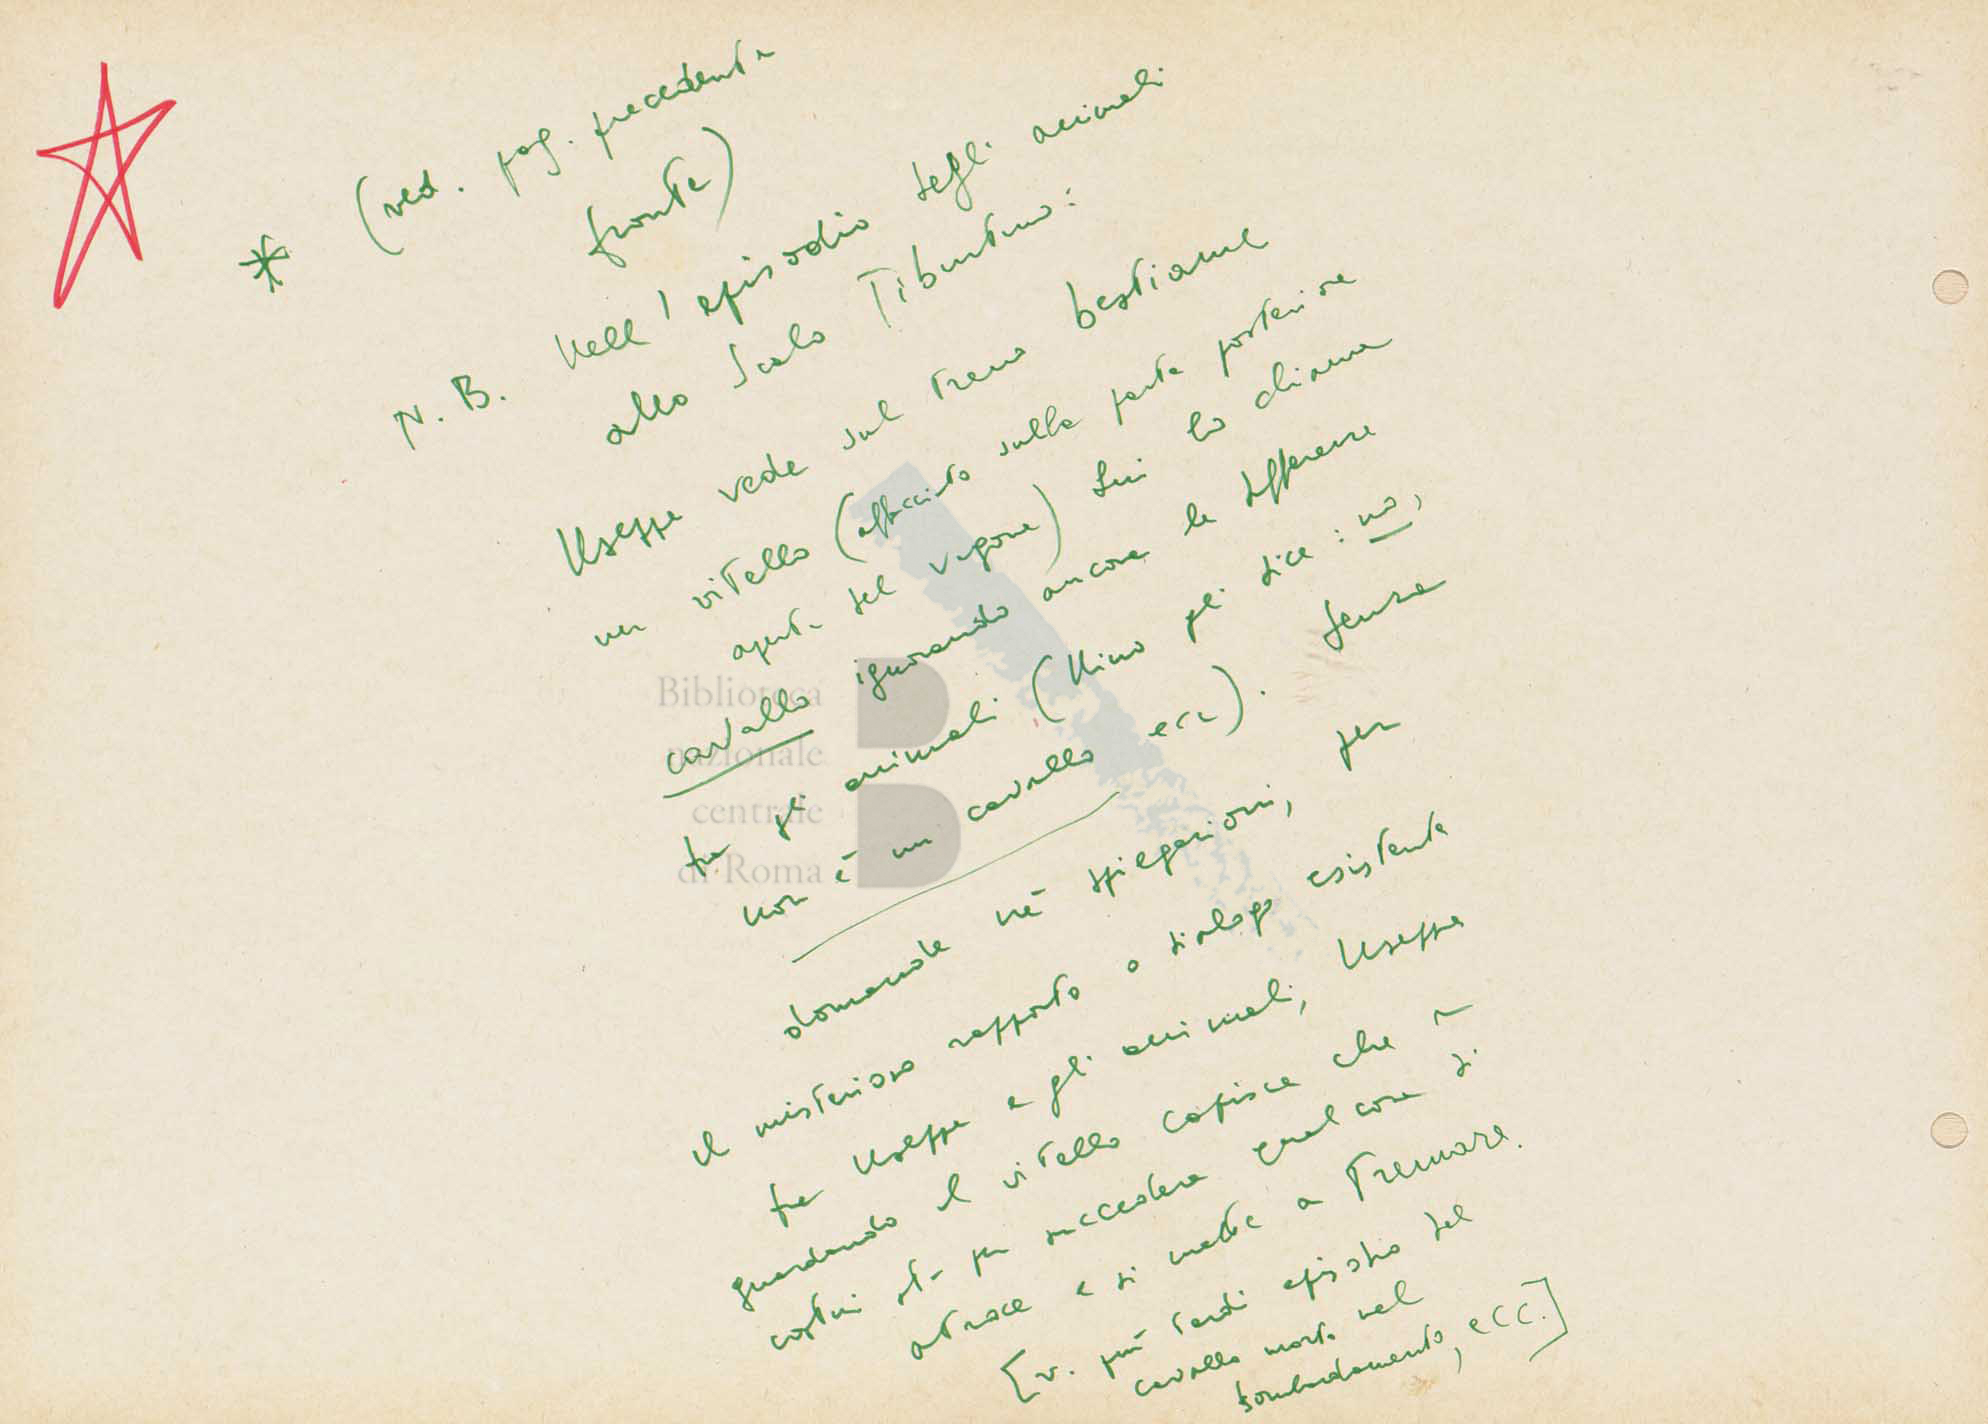 * (ved. pag. precedente
fronte)
N.B. Nell'episodio degli animali
allo Scalo Tiburtino:
Useppe vede sul treno bestiame
un vitello (affacciato sulla parte posteriore
aperta del vagone) Lui lo chiama
cavallo ignorando ancora le differenze
fra gli animali (Nino gli dice: no,
non è un cavallo ecc). Senza
domande nè spiegazioni, per
il misterioso rapporto o dialogo esistente
fra Useppe e gli animali, Useppe
guardando il vitello capisce che a
costui sta per succedere qualcosa di
atroce e si mette a tremare.
[v. più tardi episodio del
cavallo morto nel
bombardamento, ecc.]
Biblioteca
nazionale
centrale
di Roma